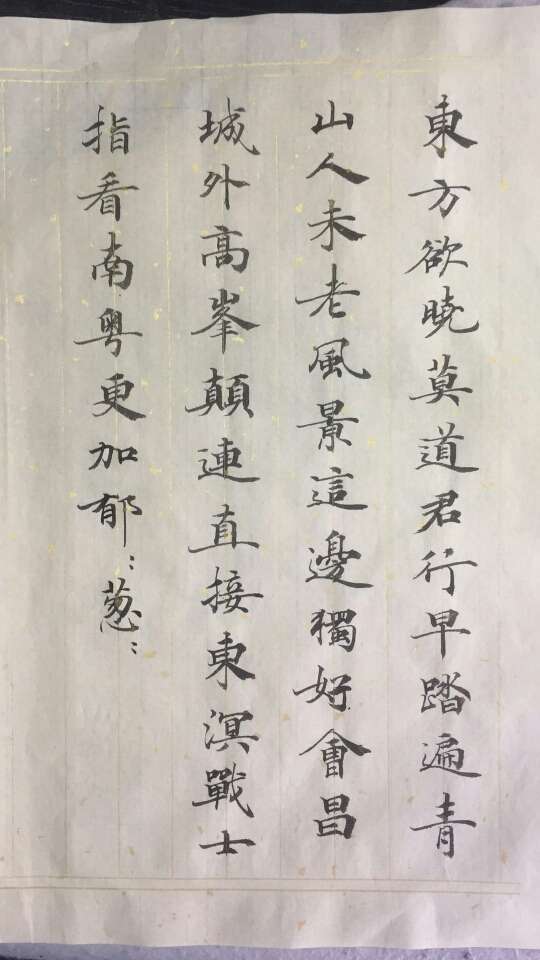 東方欲曉莫道君行早踏遍青
山人未老風景這邊獨好會昌
城外高峯顛連直接東溟戰士
指看南粤更加郁：葱：